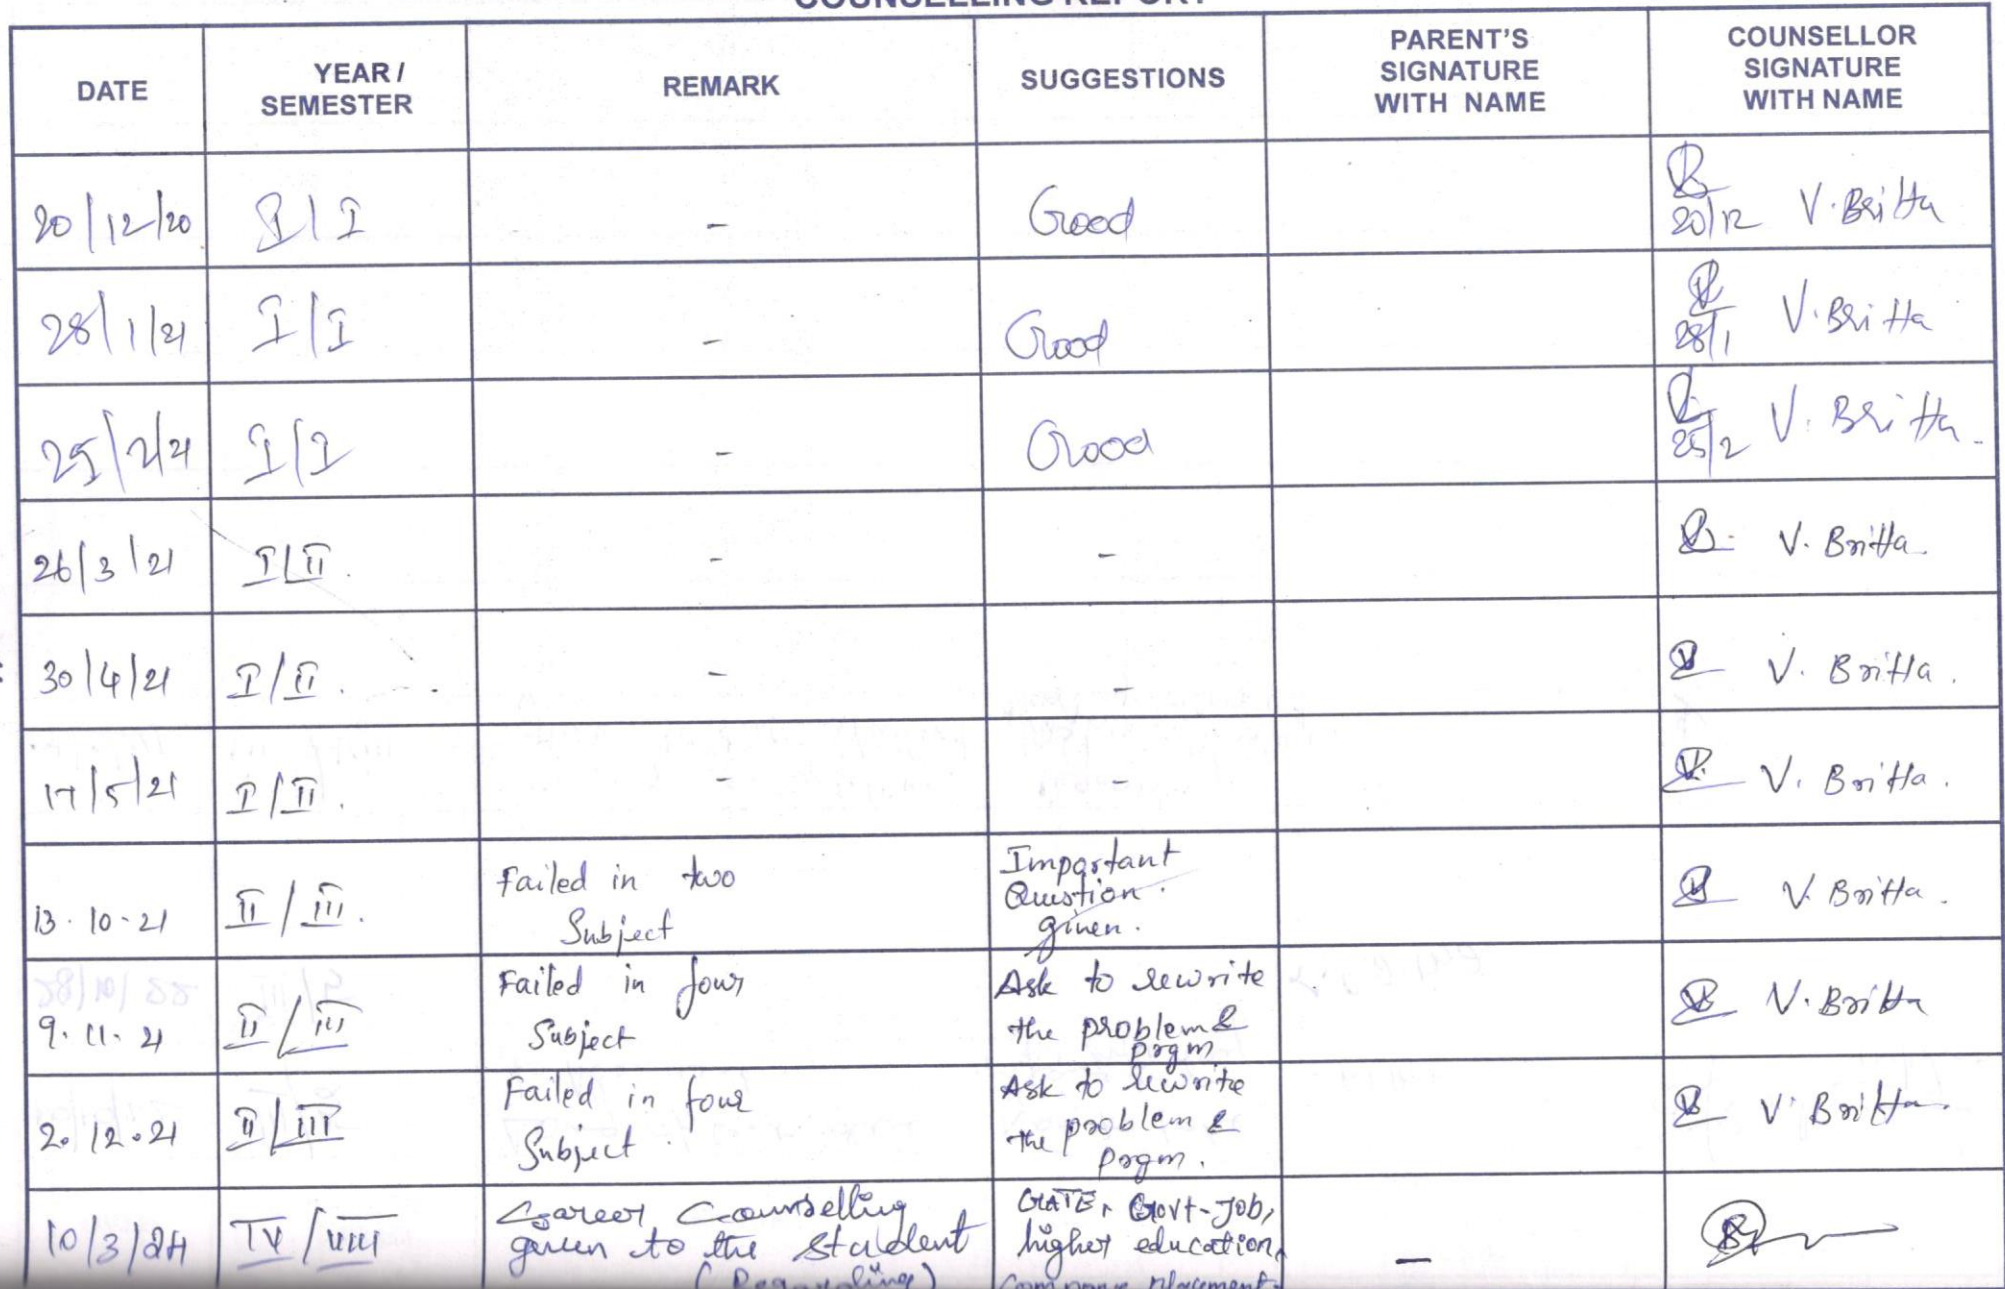 COUNSELLING REPORT
DATE YEAR / SEMESTER REMARK SUGGESTIONS PARENT'S SIGNATURE WITH NAME COUNSELLOR SIGNATURE WITH NAME
20/12/20 I/I - Good 20/12 V. Britta
28/1/21 I/I - Good 28/1 V. Britta
25/2/21 I/I - Good 25/2 V. Britta
26/3/21 I/II - - V. Britta
30/4/21 I/II - - V. Britta
17/5/21 I/II - - V. Britta
13.10.21 II/III Failed in two Subject Important Question given. V. Britta
9.11.21 II/III Failed in four Subject Ask to rewrite the problem & prgm V. Britta
2.12.21 II/III Failed in four Subject Ask to rewrite the problem & prgm. V. Britta
10/3/24 IV/VIII Career Counselling given to the Student (Regarding) GATE, Govt-Job, higher education, Company placement -